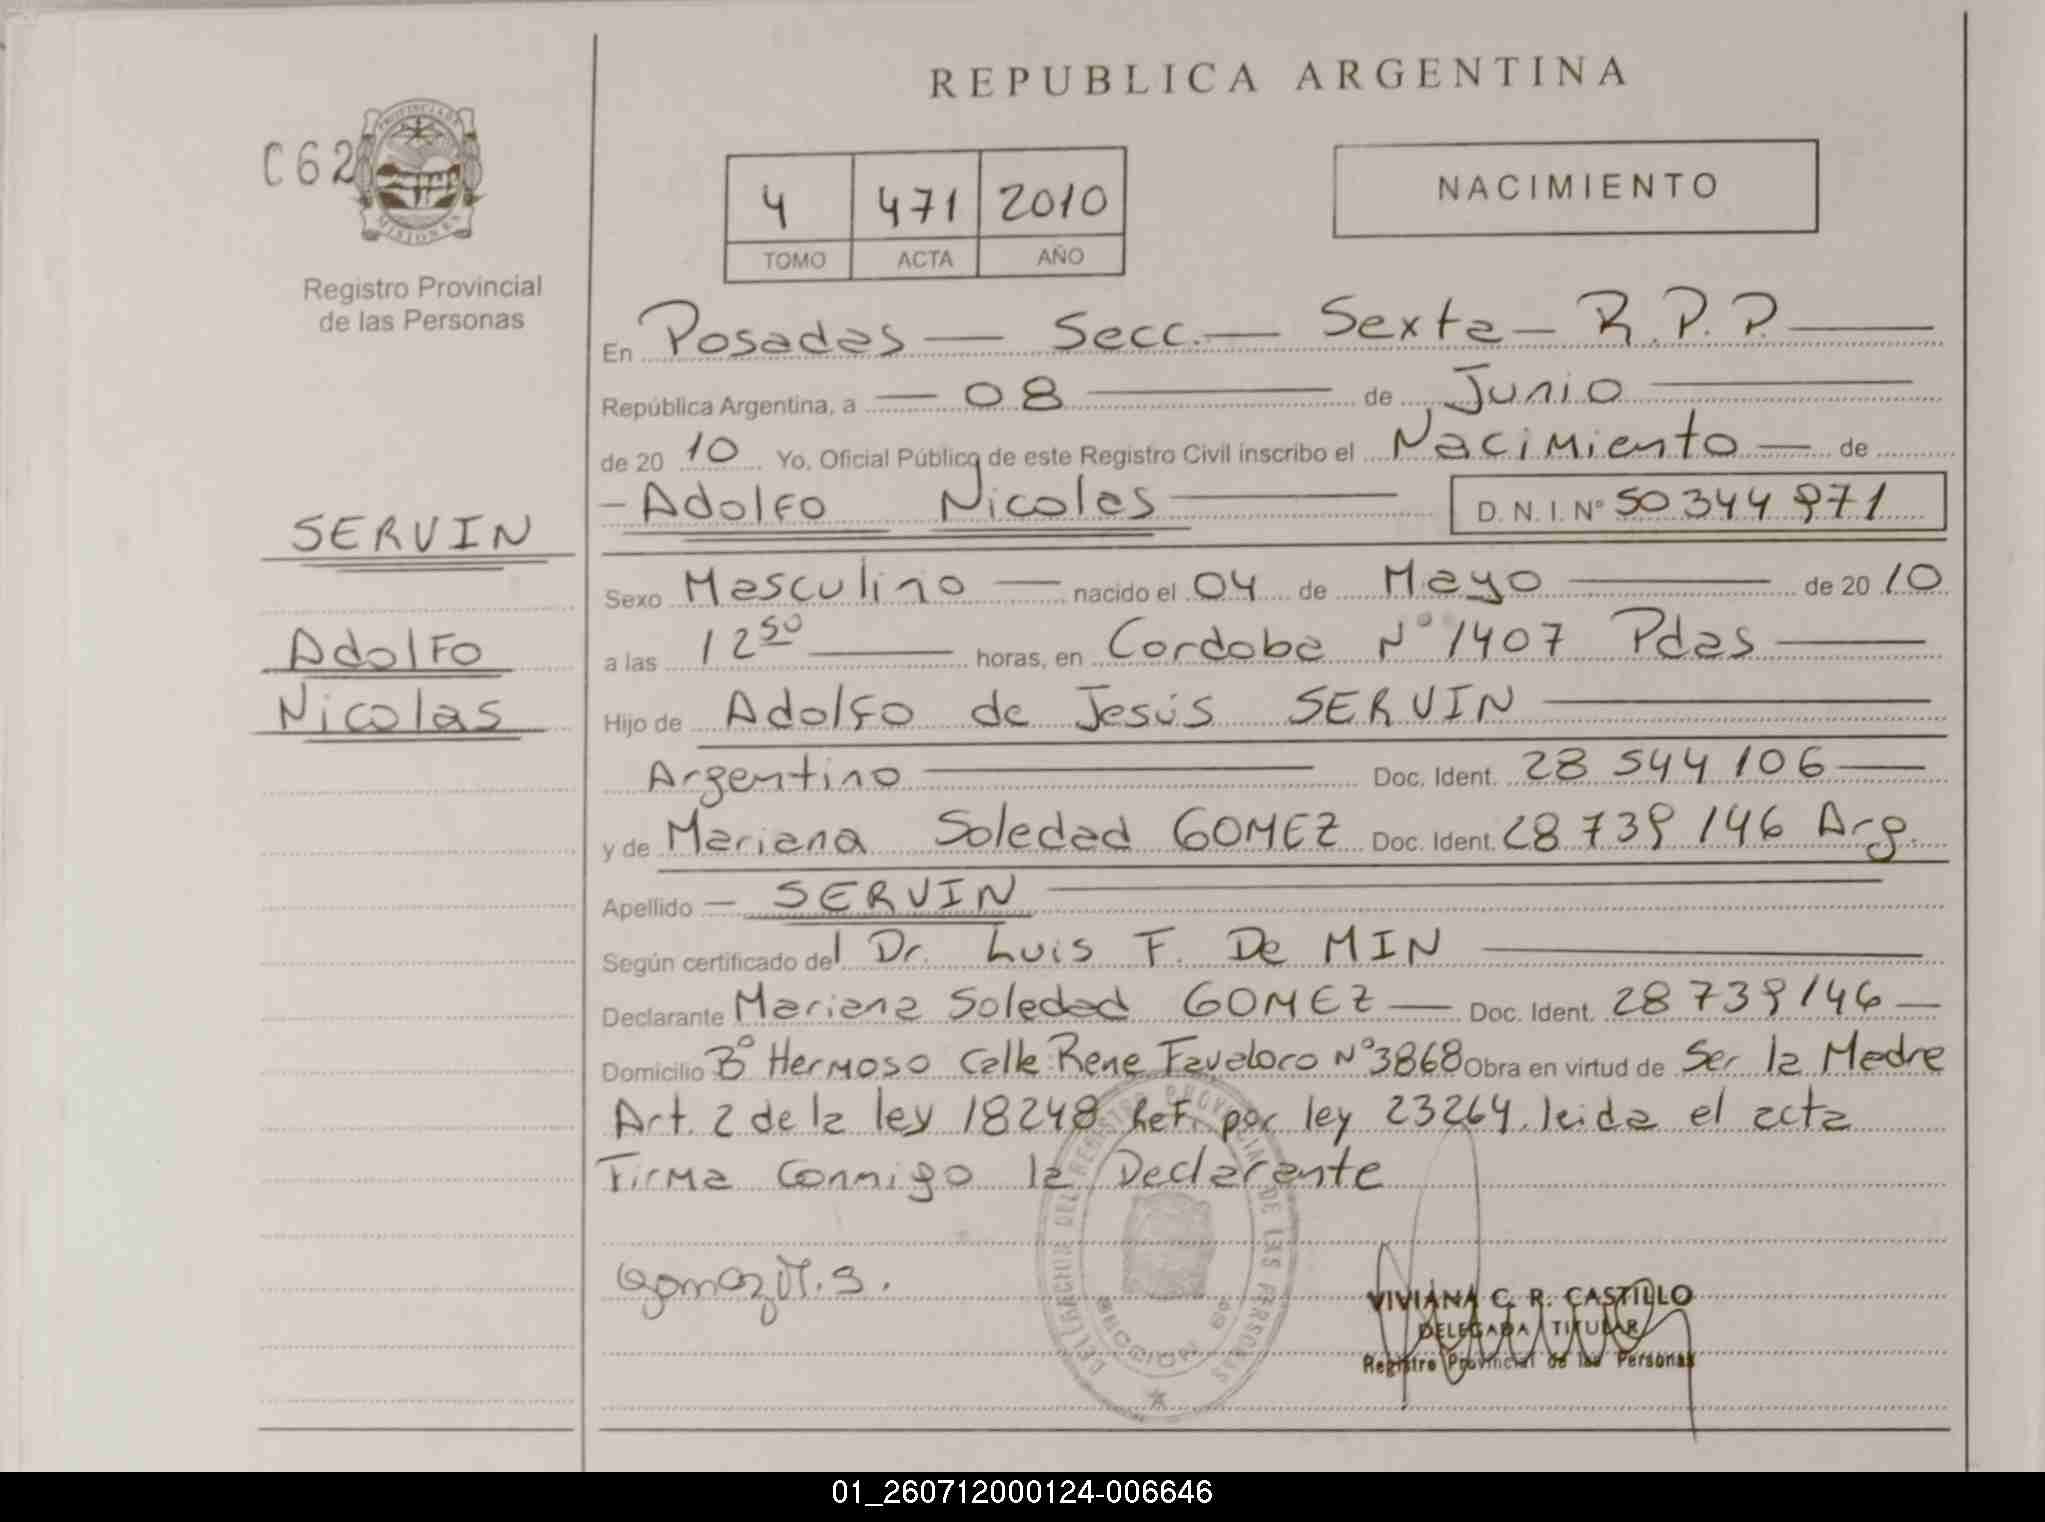 REPUBLICA ARGENTINA
C62
PROVINCIA DE
MISIONES
Registro Provincial
de las Personas
4 471 2010
TOMO ACTA AÑO
NACIMIENTO
En Posadas — Secc. — Sexta — R.P.P. —
República Argentina, a — 08 — de Junio —
de 20 10 Yo, Oficial Público de este Registro Civil inscribo el Nacimiento — de
- Adolfo Nicolas — D.N.I. Nº 50 344 971
SERVIN
Adolfo
Nicolas
Sexo Masculino — nacido el 04 de Mayo — de 20 10
a las 12 50 — horas, en Cordoba Nº 1407 Pdas —
Hijo de Adolfo de Jesús SERVIN —
Argentino — Doc. Ident. 28 544 106 —
y de Mariana Soledad GOMEZ Doc. Ident. 28 739 146 Arg.
Apellido — SERVIN —
Según certificado del Dr. Luis F. De MIN —
Declarante Mariana Soledad GOMEZ — Doc. Ident. 28 739 146 —
Domicilio Bº Hermoso Calle Rene Favaloro Nº 3868 Obra en virtud de Ser la Madre
Art. 2 de la ley 18248 Ref. por ley 23264. leida el acta
Firma Conmigo la Declarante
DELEGACION DEL REGISTRO PROVINCIAL DE LAS PERSONAS
SECCION 6º
Gomez M.S.
VIVIANA C. R. CASTILLO
DELEGADA TITULAR
Registro Provincial de las Personas
01_260712000124-006646